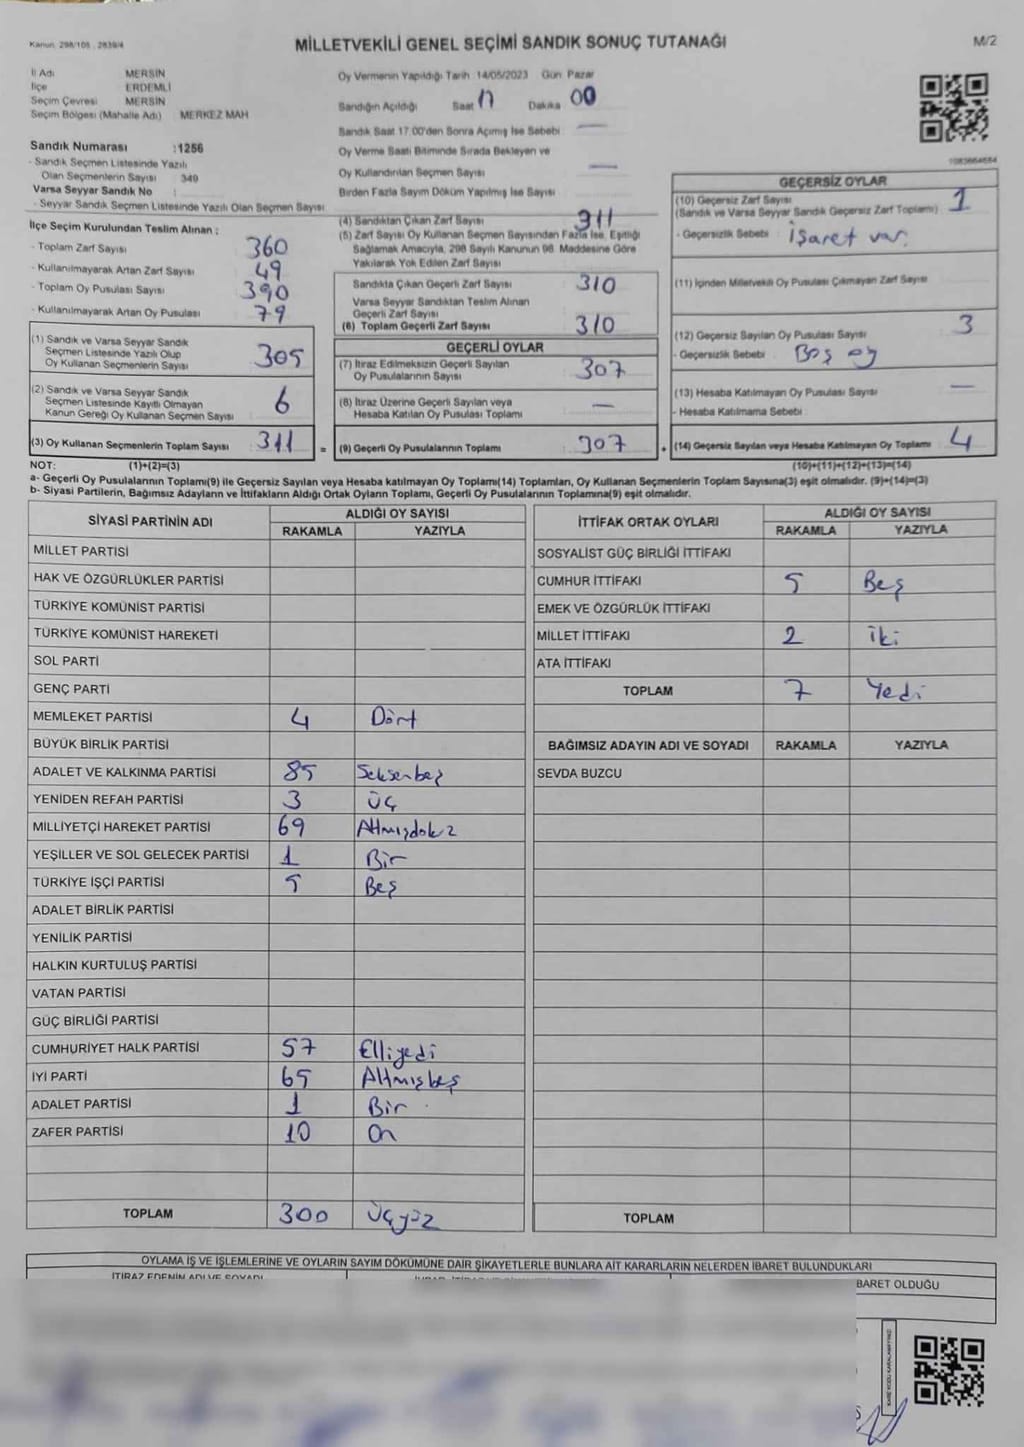 Kanun 298/105 , 2839/4
MİLLETVEKİLİ GENEL SEÇİMİ SANDIK SONUÇ TUTANAĞI
M/2
İl Adı MERSİN
İlçe ERDEMLİ
Seçim Çevresi MERSİN
Seçim Bölgesi (Mahalle Adı) MERKEZ MAH
Sandık Numarası :1256
- Sandık Seçmen Listesinde Yazılı
Olan Seçmenlerin Sayısı 349
Varsa Seyyar Sandık No :
- Seyyar Sandık Seçmen Listesinde Yazılı Olan Seçmen Sayısı
İlçe Seçim Kurulundan Teslim Alınan :
- Toplam Zarf Sayısı 360
- Kullanılmayarak Artan Zarf Sayısı 49
- Toplam Oy Pusulası Sayısı 390
- Kullanılmayarak Artan Oy Pusulası 79
(1) Sandık ve Varsa Seyyar Sandık
Seçmen Listesinde Yazılı Olup
Oy Kullanan Seçmenlerin Sayısı 305
(2) Sandık ve Varsa Seyyar Sandık
Seçmen Listesinde Kayıtlı Olmayan
Kanun Gereği Oy Kullanan Seçmen Sayısı 6
(3) Oy Kullanan Seçmenlerin Toplam Sayısı 311 =
Oy Vermenin Yapıldığı Tarih 14/05/2023 Gün Pazar
Sandığın Açıldığı Saat 17 Dakika 00
Sandık Saat 17.00'den Sonra Açılmış İse Sebebi —
Oy Verme Saati Bitiminde Sırada Bekleyen ve
Oy Kullandırılan Seçmen Sayısı —
Birden Fazla Sayım Döküm Yapılmış İse Sayısı
(4) Sandıktan Çıkan Zarf Sayısı 311
(5) Zarf Sayısı Oy Kullanan Seçmen Sayısından Fazla İse, Eşitliği
Sağlamak Amacıyla, 298 Sayılı Kanunun 98. Maddesine Göre
Yakılarak Yok Edilen Zarf Sayısı
Sandıkta Çıkan Geçerli Zarf Sayısı 310
Varsa Seyyar Sandıktan Teslim Alınan
Geçerli Zarf Sayısı
(6) Toplam Geçerli Zarf Sayısı 310
GEÇERLİ OYLAR
(7) İtiraz Edilmeksizin Geçerli Sayılan
Oy Pusulalarının Sayısı 307
(8) İtiraz Üzerine Geçerli Sayılan veya
Hesaba Katılan Oy Pusulası Toplamı —
(9) Geçerli Oy Pusulalarının Toplamı 307 +
1083664684
GEÇERSİZ OYLAR
(10) Geçersiz Zarf Sayısı
(Sandık ve Varsa Seyyar Sandık Geçersiz Zarf Toplamı) 1
- Geçersizlik Sebebi : işaret var.
(11) İçinden Milletvekili Oy Pusulası Çıkmayan Zarf Sayısı
(12) Geçersiz Sayılan Oy Pusulası Sayısı 3
- Geçersizlik Sebebi : Boş oy
(13) Hesaba Katılmayan Oy Pusulası Sayısı —
- Hesaba Katılmama Sebebi
(14) Geçersiz Sayılan veya Hesaba Katılmayan Oy Toplamı 4
NOT: (1)+(2)=(3) (10)+(11)+(12)+(13)=(14)
a- Geçerli Oy Pusulalarının Toplamı(9) ile Geçersiz Sayılan veya Hesaba katılmayan Oy Toplamı(14) Toplamları, Oy Kullanan Seçmenlerin Toplam Sayısına(3) eşit olmalıdır. (9)+(14)=(3)
b- Siyasi Partilerin, Bağımsız Adayların ve İttifakların Aldığı Ortak Oyların Toplamı, Geçerli Oy Pusulalarının Toplamına(9) eşit olmalıdır.
SİYASİ PARTİNİN ADI ALDIĞI OY SAYISI
RAKAMLA YAZIYLA
MİLLET PARTİSİ
HAK VE ÖZGÜRLÜKLER PARTİSİ
TÜRKİYE KOMÜNİST PARTİSİ
TÜRKİYE KOMÜNİST HAREKETİ
SOL PARTİ
GENÇ PARTİ
MEMLEKET PARTİSİ 4 Dört
BÜYÜK BİRLİK PARTİSİ
ADALET VE KALKINMA PARTİSİ 85 Seksenbeş
YENİDEN REFAH PARTİSİ 3 Üç
MİLLİYETÇİ HAREKET PARTİSİ 69 Altmışdokuz
YEŞİLLER VE SOL GELECEK PARTİSİ 1 Bir
TÜRKİYE İŞÇİ PARTİSİ 5 Beş
ADALET BİRLİK PARTİSİ
YENİLİK PARTİSİ
HALKIN KURTULUŞ PARTİSİ
VATAN PARTİSİ
GÜÇ BİRLİĞİ PARTİSİ
CUMHURİYET HALK PARTİSİ 57 Elliyedi
İYİ PARTİ 65 Altmışbeş
ADALET PARTİSİ 1 Bir
ZAFER PARTİSİ 10 On
TOPLAM 300 Üçyüz
İTTİFAK ORTAK OYLARI ALDIĞI OY SAYISI
RAKAMLA YAZIYLA
SOSYALİST GÜÇ BİRLİĞİ İTTİFAKI
CUMHUR İTTİFAKI 5 Beş
EMEK VE ÖZGÜRLÜK İTTİFAKI
MİLLET İTTİFAKI 2 İki
ATA İTTİFAKI
TOPLAM 7 Yedi
BAĞIMSIZ ADAYIN ADI VE SOYADI RAKAMLA YAZIYLA
SEVDA BUZCU
TOPLAM
OYLAMA İŞ VE İŞLEMLERİNE VE OYLARIN SAYIM DÖKÜMÜNE DAİR ŞİKAYETLERLE BUNLARA AİT KARARLARIN NELERDEN İBARET BULUNDUKLARI
İTİRAZ EDENİN ADI VE SOYADI
BARET OLDUĞU
KARE KODU KARALAMAYINIZ